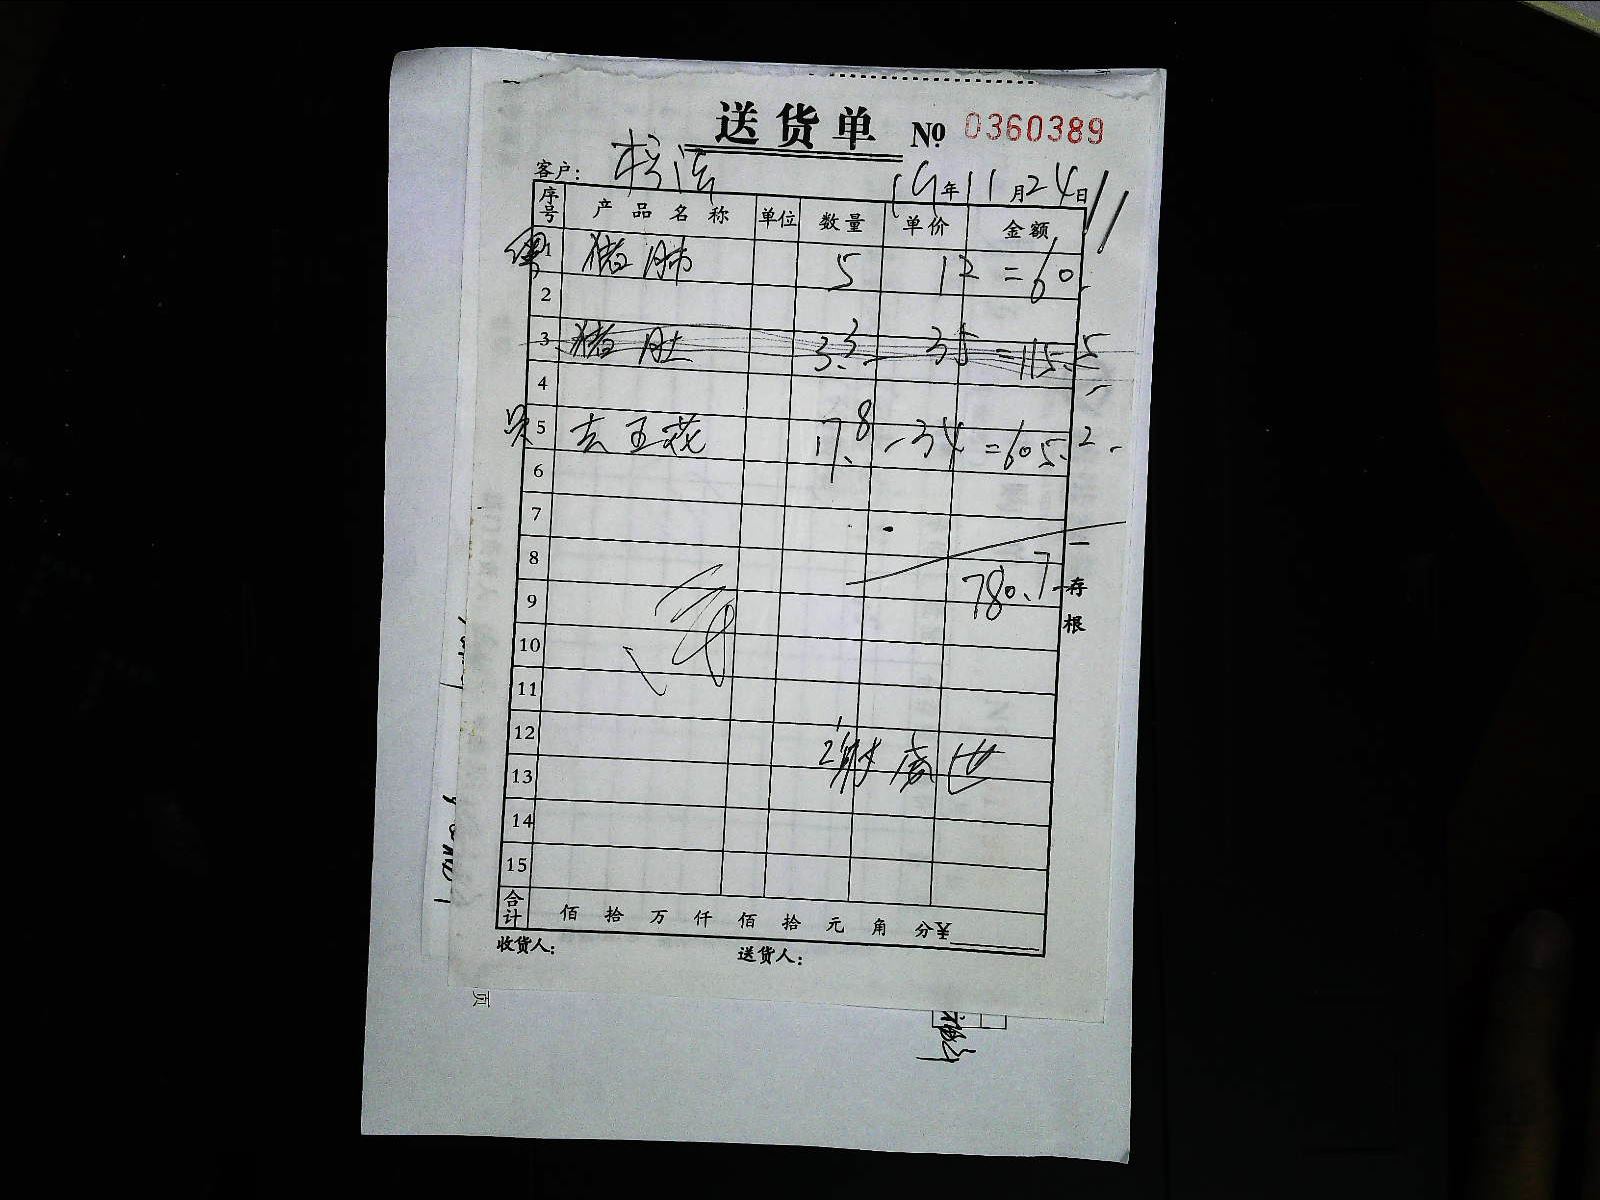 送货单 № 0360389
客户：
19年11月24日
序号 产品名称 单位 数量 单价 金额
1 猪肺 5 12 =60.
2
3 猪肚 3.3 - 35 =115.5
4
5 17.8 -34 =605.2
6
7
8 780.7
9
10
11
12
13
14
15
一存根
合计 佰 拾 万 仟 佰 拾 元 角 分¥
收货人： 送货人：
页